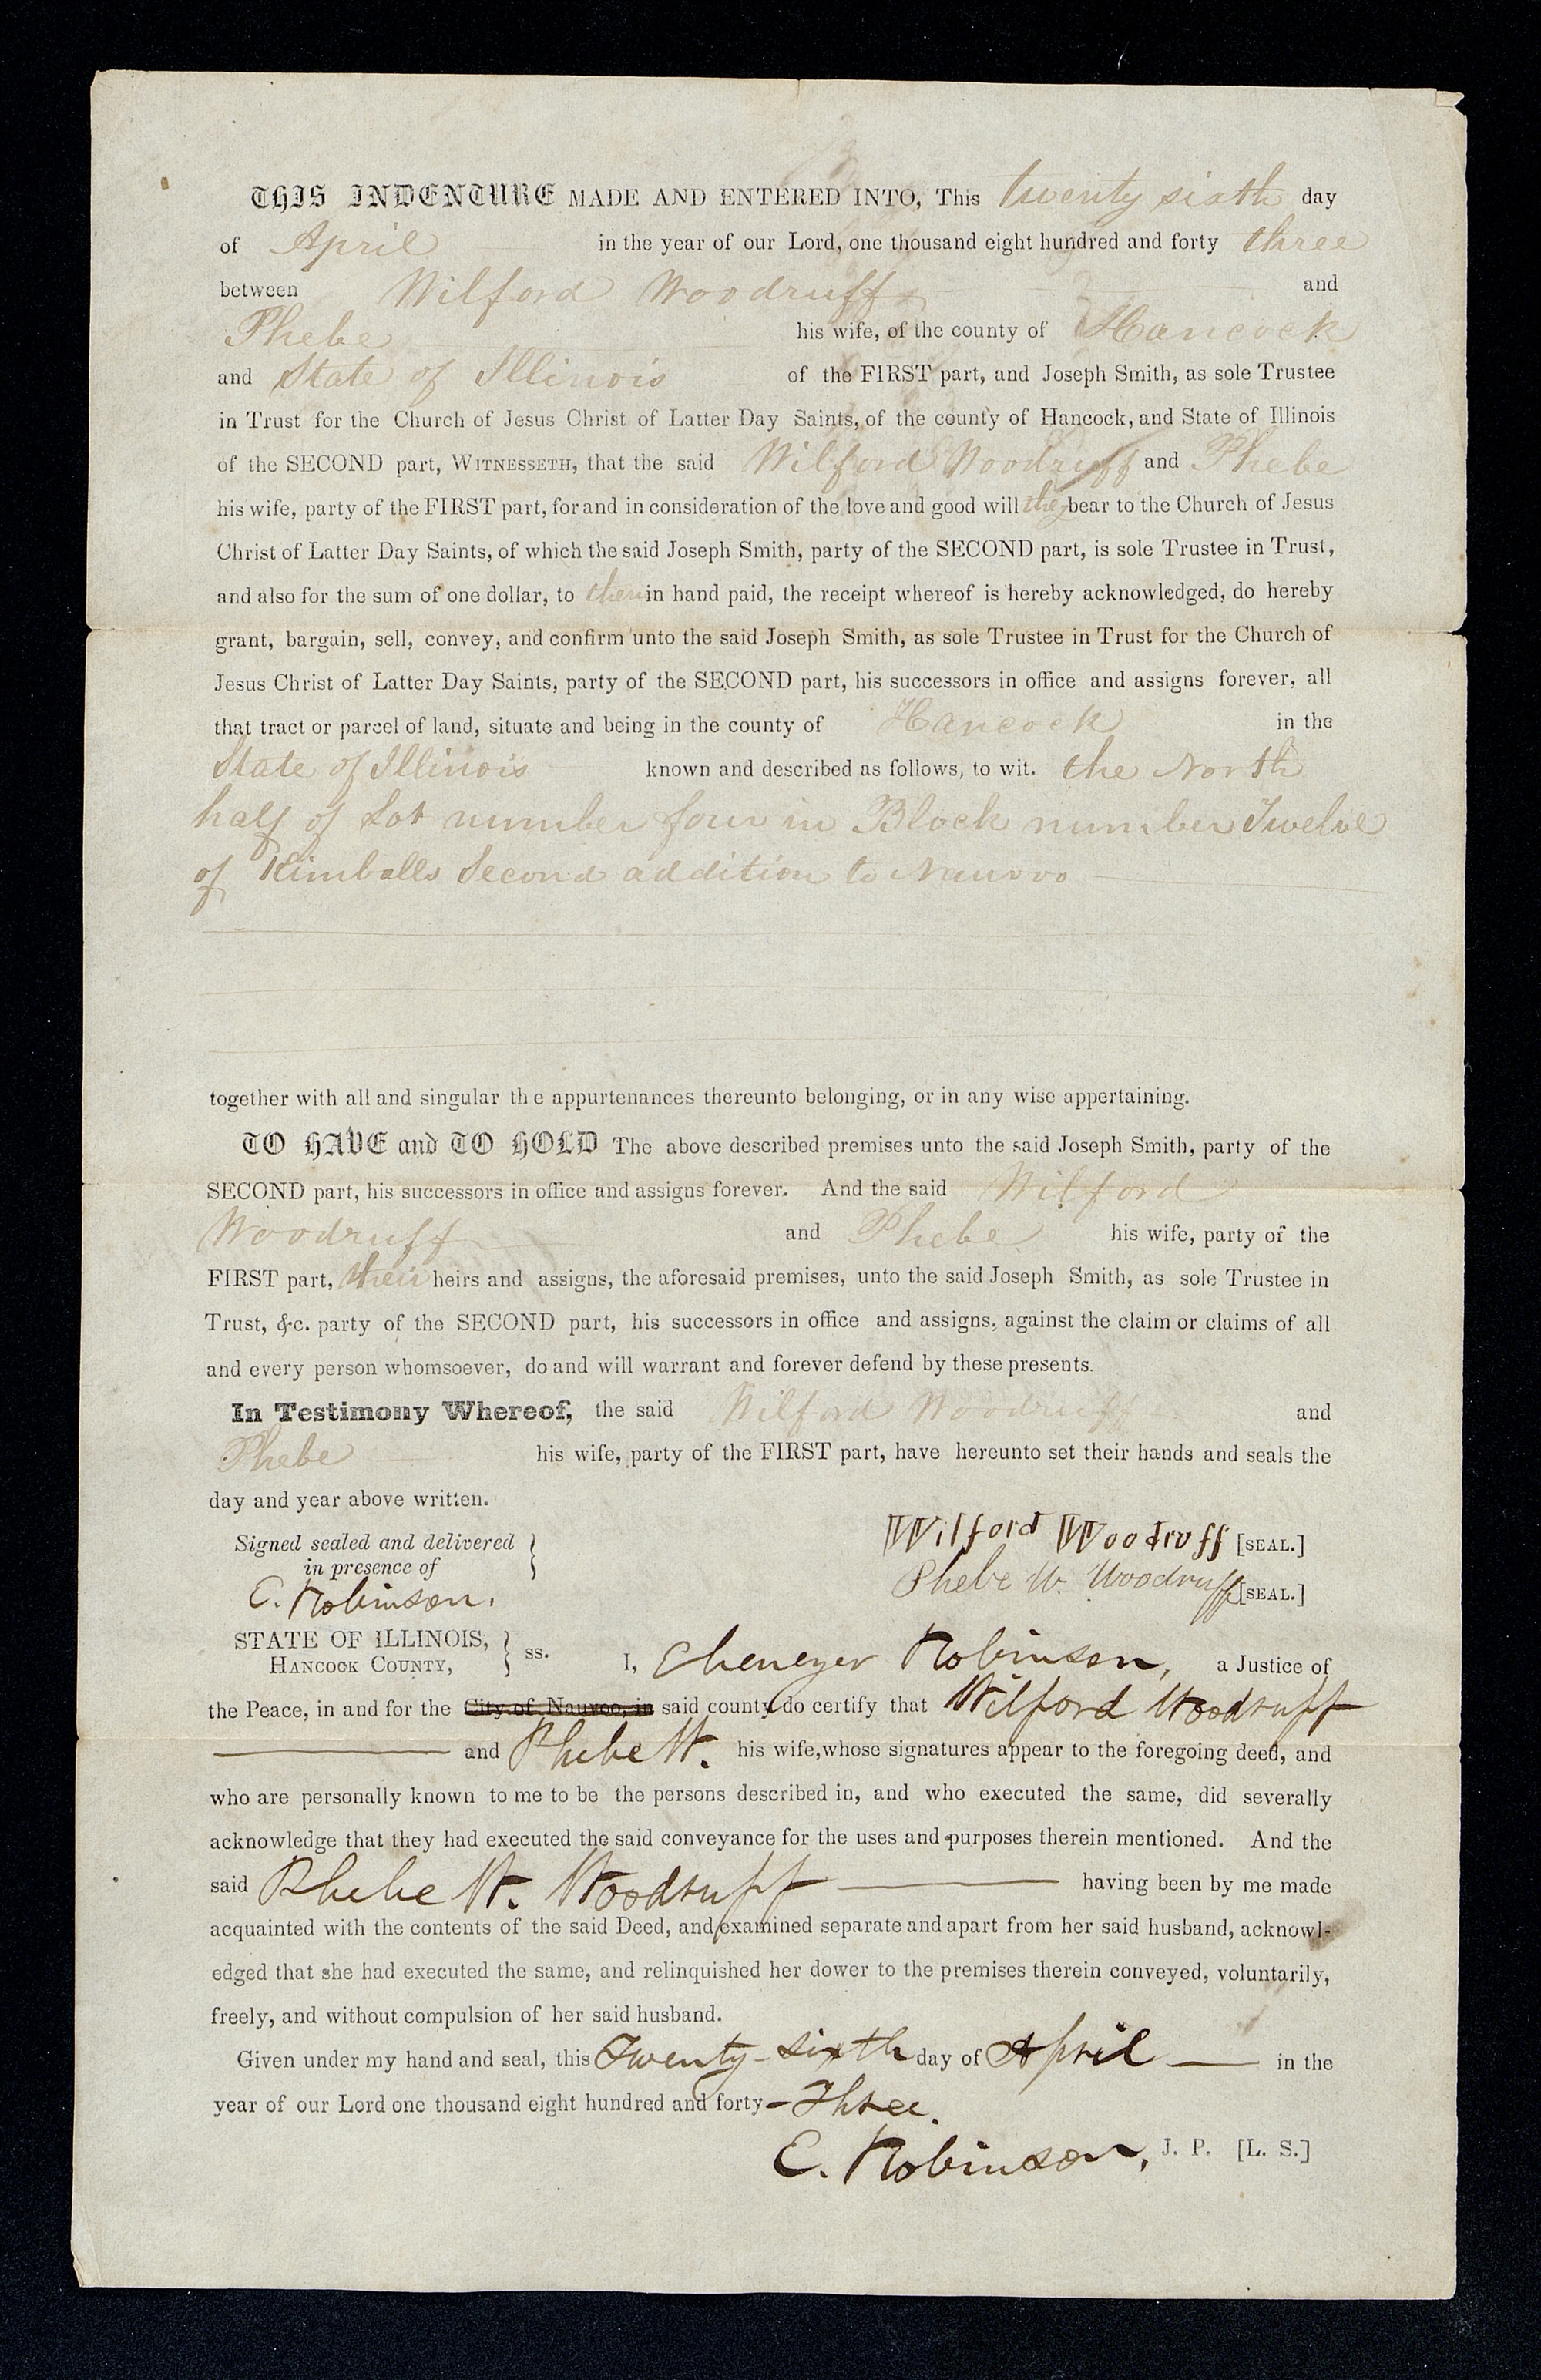 THIS INDENTURE MADE AND ENTERED INTO, This twenty sixth day
of April in the year of our Lord, one thousand eight hundred and forty three
between Wilford Woodruff and
Phebe his wife, of the county of Hancock
and State of Illinois of the FIRST part, and Joseph Smith, as sole Trustee
in Trust for the Church of Jesus Christ of Latter Day Saints, of the county of Hancock, and State of Illinois
of the SECOND part, WITNESSETH, that the said Wilford Woodruff and Phebe
his wife, party of the FIRST part, for and in consideration of the love and good will they bear to the Church of Jesus
Christ of Latter Day Saints, of which the said Joseph Smith, party of the SECOND part, is sole Trustee in Trust,
and also for the sum of one dollar, to them in hand paid, the receipt whereof is hereby acknowledged, do hereby
grant, bargain, sell, convey, and confirm unto the said Joseph Smith, as sole Trustee in Trust for the Church of
Jesus Christ of Latter Day Saints, party of the SECOND part, his successors in office and assigns forever, all
that tract or parcel of land, situate and being in the county of Hancock in the
State of Illinois known and described as follows, to wit. the North
half of Lot number four in Block number Twelve
of Kimballs Second addition to Nauvoo
together with all and singular the appurtenances thereunto belonging, or in any wise appertaining.
TO HAVE and TO HOLD The above described premises unto the said Joseph Smith, party of the
SECOND part, his successors in office and assigns forever. And the said Wilford
Woodruff and Phebe his wife, party of the
FIRST part, their heirs and assigns, the aforesaid premises, unto the said Joseph Smith, as sole Trustee in
Trust, &c. party of the SECOND part, his successors in office and assigns, against the claim or claims of all
and every person whomsoever, do and will warrant and forever defend by these presents.
In Testimony Whereof, the said Wilford Woodruff and
Phebe his wife, party of the FIRST part, have hereunto set their hands and seals the
day and year above written.
Signed sealed and delivered
in presence of
E. Robinson.
Wilford Woodruff [SEAL.]
Phebe W. Woodruff [SEAL.]
STATE OF ILLINOIS,
HANCOCK COUNTY, } ss. I, Ebenezer Robinson, a Justice of
the Peace, in and for the City of Nauvoo, in said county do certify that Wilford Woodruff
and Phebe W. his wife, whose signatures appear to the foregoing deed, and
who are personally known to me to be the persons described in, and who executed the same, did severally
acknowledge that they had executed the said conveyance for the uses and purposes therein mentioned. And the
said Phebe W. Woodruff having been by me made
acquainted with the contents of the said Deed, and examined separate and apart from her said husband, acknowl-
edged that she had executed the same, and relinquished her dower to the premises therein conveyed, voluntarily,
freely, and without compulsion of her said husband.
Given under my hand and seal, this Twenty-sixth day of April in the
year of our Lord one thousand eight hundred and forty-Three.
E. Robinson, J. P. [L. S.]